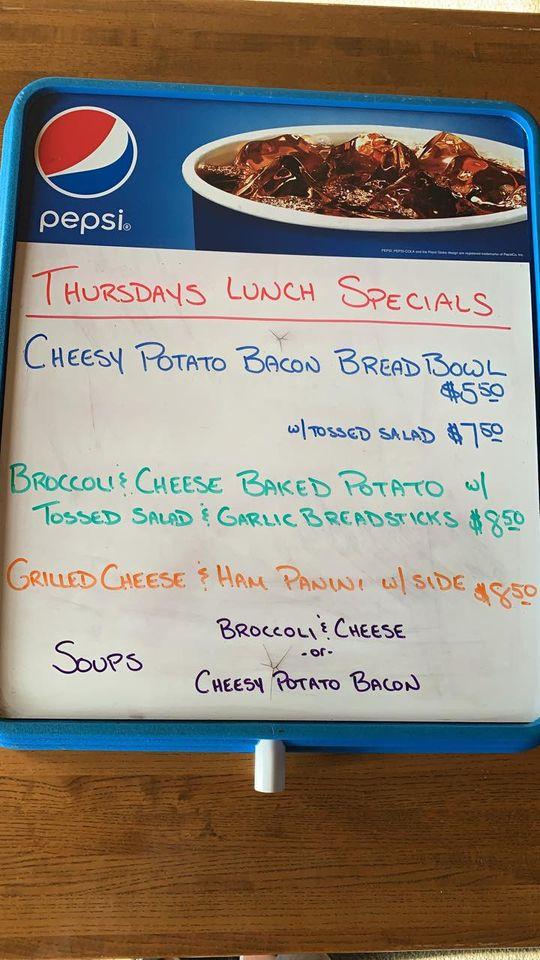 pepsi®
PEPSI, PEPSI-COLA and the Pepsi Globe design are registered trademarks of PepsiCo, Inc.
THURSDAYS LUNCH SPECIALS
CHEESY POTATO BACON BREAD BOWL
$5.50
W/TOSSED SALAD $7.50
BROCCOLI & CHEESE BAKED POTATO W/
TOSSED SALAD & GARLIC BREADSTICKS $8.50
GRILLED CHEESE & HAM PANINI W/ SIDE $8.50
BROCCOLI & CHEESE
SOUPS -or-
CHEESY POTATO BACON